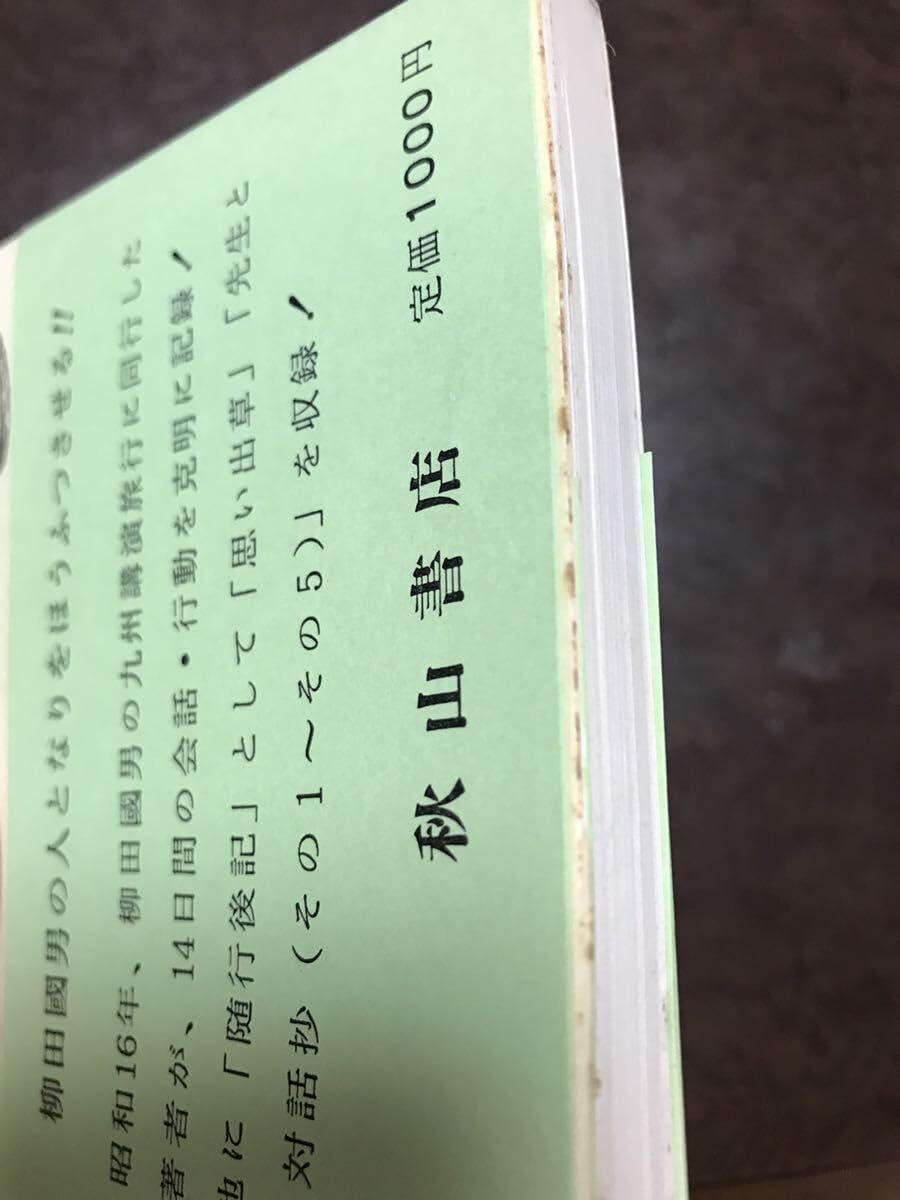 柳田國男の人となりをほうふつさせる!!
昭和16年、柳田國男の九州講演旅行に同行した
著者が、14日間の会話・行動を克明に記録!
他に「随行後記」として「思い出草」「先生と
対話抄(その1〜その5)」を収録!
秋山書店 定価1000円